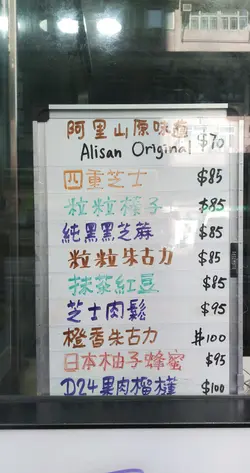 阿里山原味蛋 $70
Alisan Original
四重芝士 $85
粒粒榛子 $85
純黑黑芝蔴 $85
粒粒朱古力 $85
抹茶紅豆 $85
芝士肉鬆 $95
橙香朱古力 $100
日本柚子蜂蜜 $95
D24果肉榴槤 $100